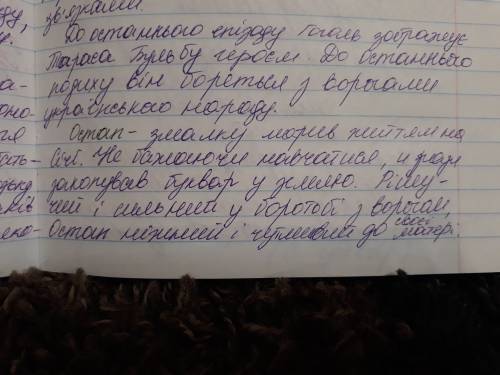 ду, зв'язками.
До останнього епізоду Гоголь зображує
Тараса Бульбу героєм. До останнього
па- подиху він бореться з ворогами
оно- українського народу.
ся Остап - змалку марив життям на
ать- Січі. Не бажаючи навчатися, чотири
закопував буквар у землю. Рішу-
чий і сильний у боротобі з ворогам,
Остап ніжний і чутливий до своєї матері.